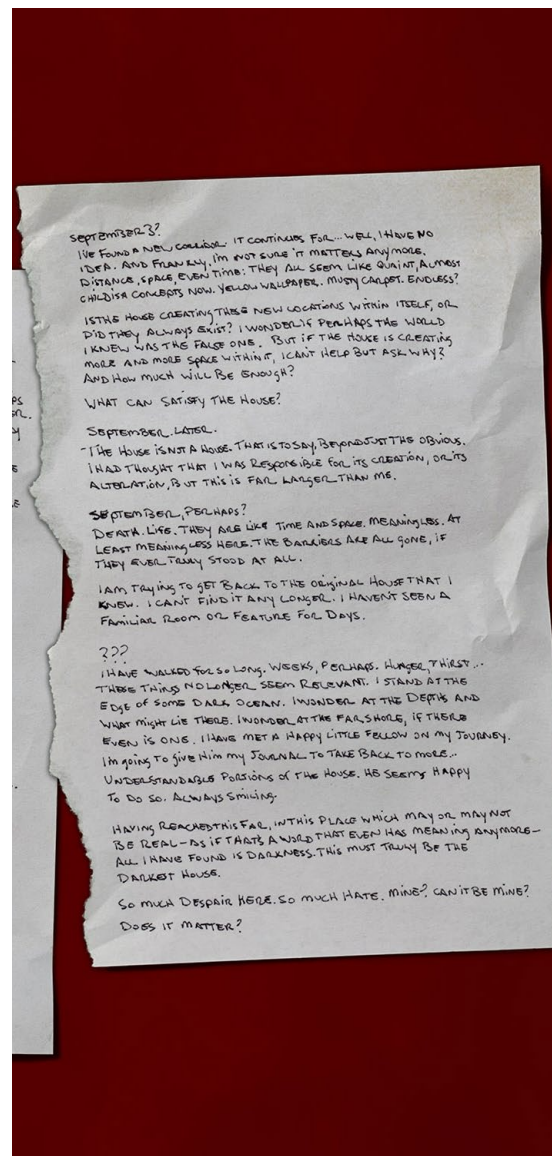 SEPTEMBER 3?
I'VE FOUND A NEW CORRIDOR. IT CONTINUES FOR... WELL, I HAVE NO
IDEA. AND FRANKLY, I'M NOT SURE IT MATTERS ANYMORE.
DISTANCE, SPACE, EVEN TIME: THEY ALL SEEM LIKE QUAINT, ALMOST
CHILDISH CONCEPTS NOW. YELLOW WALLPAPER. MUSTY CARPET. ENDLESS?
IS THE HOUSE CREATING THESE NEW LOCATIONS WITHIN ITSELF, OR
DID THEY ALWAYS EXIST? I WONDER IF PERHAPS THE WORLD
I KNEW WAS THE FALSE ONE. BUT IF THE HOUSE IS CREATING
MORE AND MORE SPACE WITHIN IT, I CAN'T HELP BUT ASK WHY?
AND HOW MUCH WILL BE ENOUGH?
WHAT CAN SATISFY THE HOUSE?
SEPTEMBER. LATER.
THE HOUSE IS NOT A HOUSE. THAT IS TO SAY, BEYOND JUST THE OBVIOUS.
I HAD THOUGHT THAT I WAS RESPONSIBLE FOR ITS CREATION, OR ITS
ALTERATION, BUT THIS IS FAR LARGER THAN ME.
SEPTEMBER, PERHAPS?
DEATH. LIFE. THEY ARE LIKE TIME AND SPACE. MEANINGLESS. AT
LEAST MEANINGLESS HERE. THE BARRIERS ARE ALL GONE, IF
THEY EVER TRULY STOOD AT ALL.
I AM TRYING TO GET BACK TO THE ORIGINAL HOUSE THAT I
KNEW. I CAN'T FIND IT ANY LONGER. I HAVEN'T SEEN A
FAMILIAR ROOM OR FEATURE FOR DAYS.
???
I HAVE WALKED FOR SO LONG. WEEKS, PERHAPS. HUNGER, THIRST...
THESE THINGS NO LONGER SEEM RELEVANT. I STAND AT THE
EDGE OF SOME DARK OCEAN. I WONDER AT THE DEPTHS AND
WHAT MIGHT LIE THERE. I WONDER AT THE FAR SHORE, IF THERE
EVEN IS ONE. I HAVE MET A HAPPY LITTLE FELLOW ON MY JOURNEY.
I'M GOING TO GIVE HIM MY JOURNAL TO TAKE BACK TO MORE...
UNDERSTANDABLE PORTIONS OF THE HOUSE. HE SEEMS HAPPY
TO DO SO. ALWAYS SMILING.
HAVING REACHED THIS FAR, IN THIS PLACE WHICH MAY OR MAY NOT
BE REAL - AS IF THAT'S A WORD THAT EVEN HAS MEANING ANYMORE -
ALL I HAVE FOUND IS DARKNESS. THIS MUST TRULY BE THE
DARKEST HOUSE.
SO MUCH DESPAIR HERE. SO MUCH HATE. MINE? CAN IT BE MINE?
DOES IT MATTER?